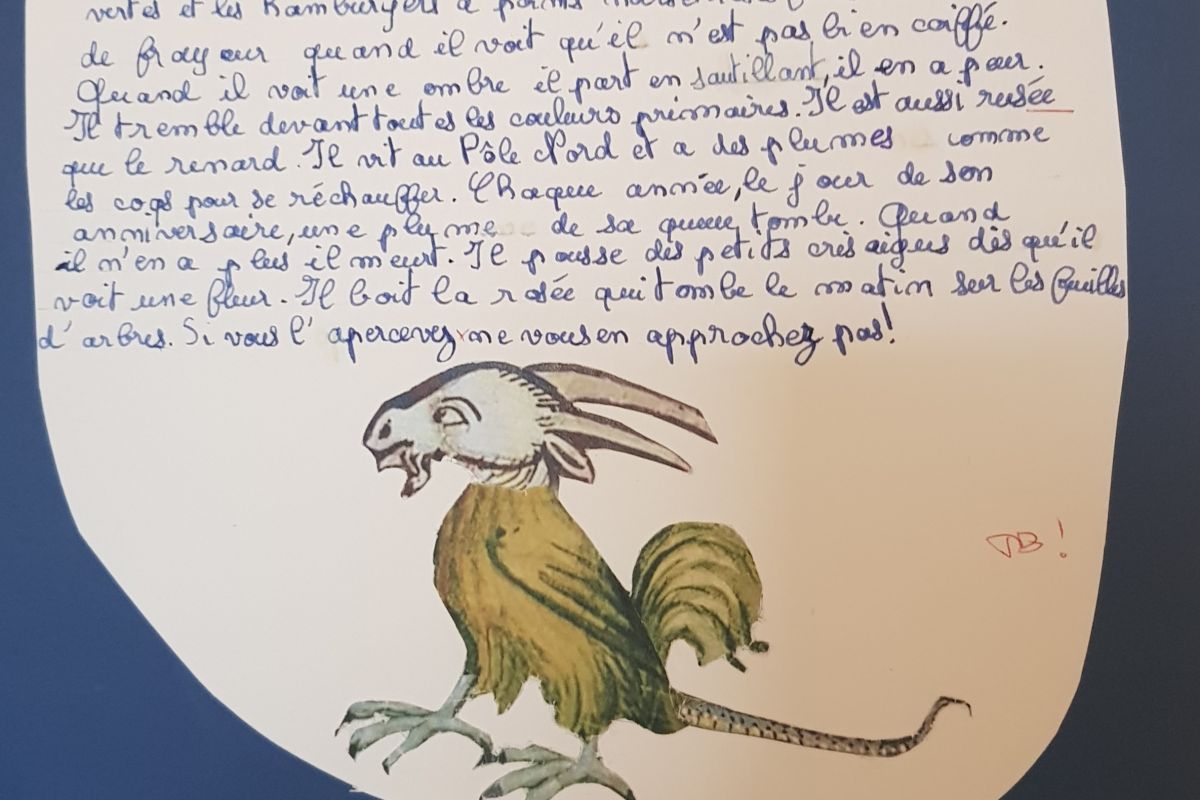 vertes et les hamburgers à
de frayeur quand il voit qu'il n'est pas bien coiffé.
Quand il voit une ombre il part en sautillant, il en a peur.
Il tremble devant toutes les couleurs primaires. Il est aussi rusée
que le renard. Il vit au Pôle Nord et a des plumes comme
les coqs pour se réchauffer. Chaque année, le jour de son
anniversaire, une plume de sa queue tombe. Quand
il n'en a plus il meurt. Il pousse des petits cris aigus dès qu'il
voit une fleur. Il boit la rosée qui tombe le matin sur les feuilles
d'arbres. Si vous l'apercevez ne vous en approchez pas!
TB!